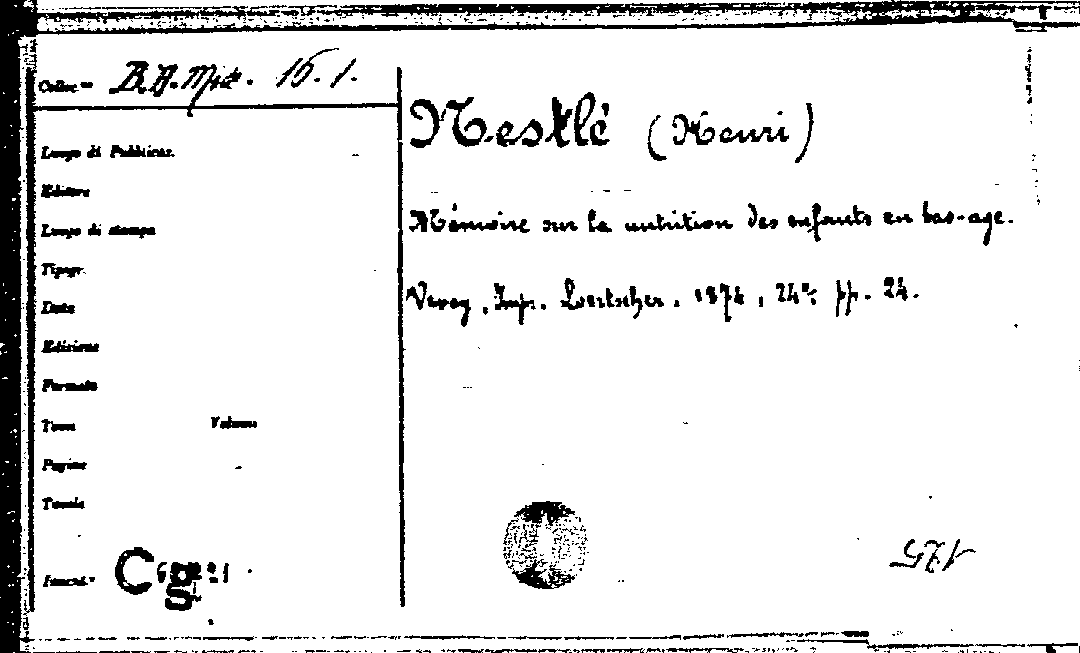 Colloc.ne B.A. Mpa. 16. 1.
Nestlé (Henri)
Luogo di Pubblicaz.
Editore
Mémoire sur la nutrition des enfants en bas-age.
Luogo di stampa
Tipogr.
Vevey, Imp. Loertscher. 1874, 24°; pp. 24.
Data
Edizione
Formato
Tomo Volume
Pagine
Tavole
Invent.°
175